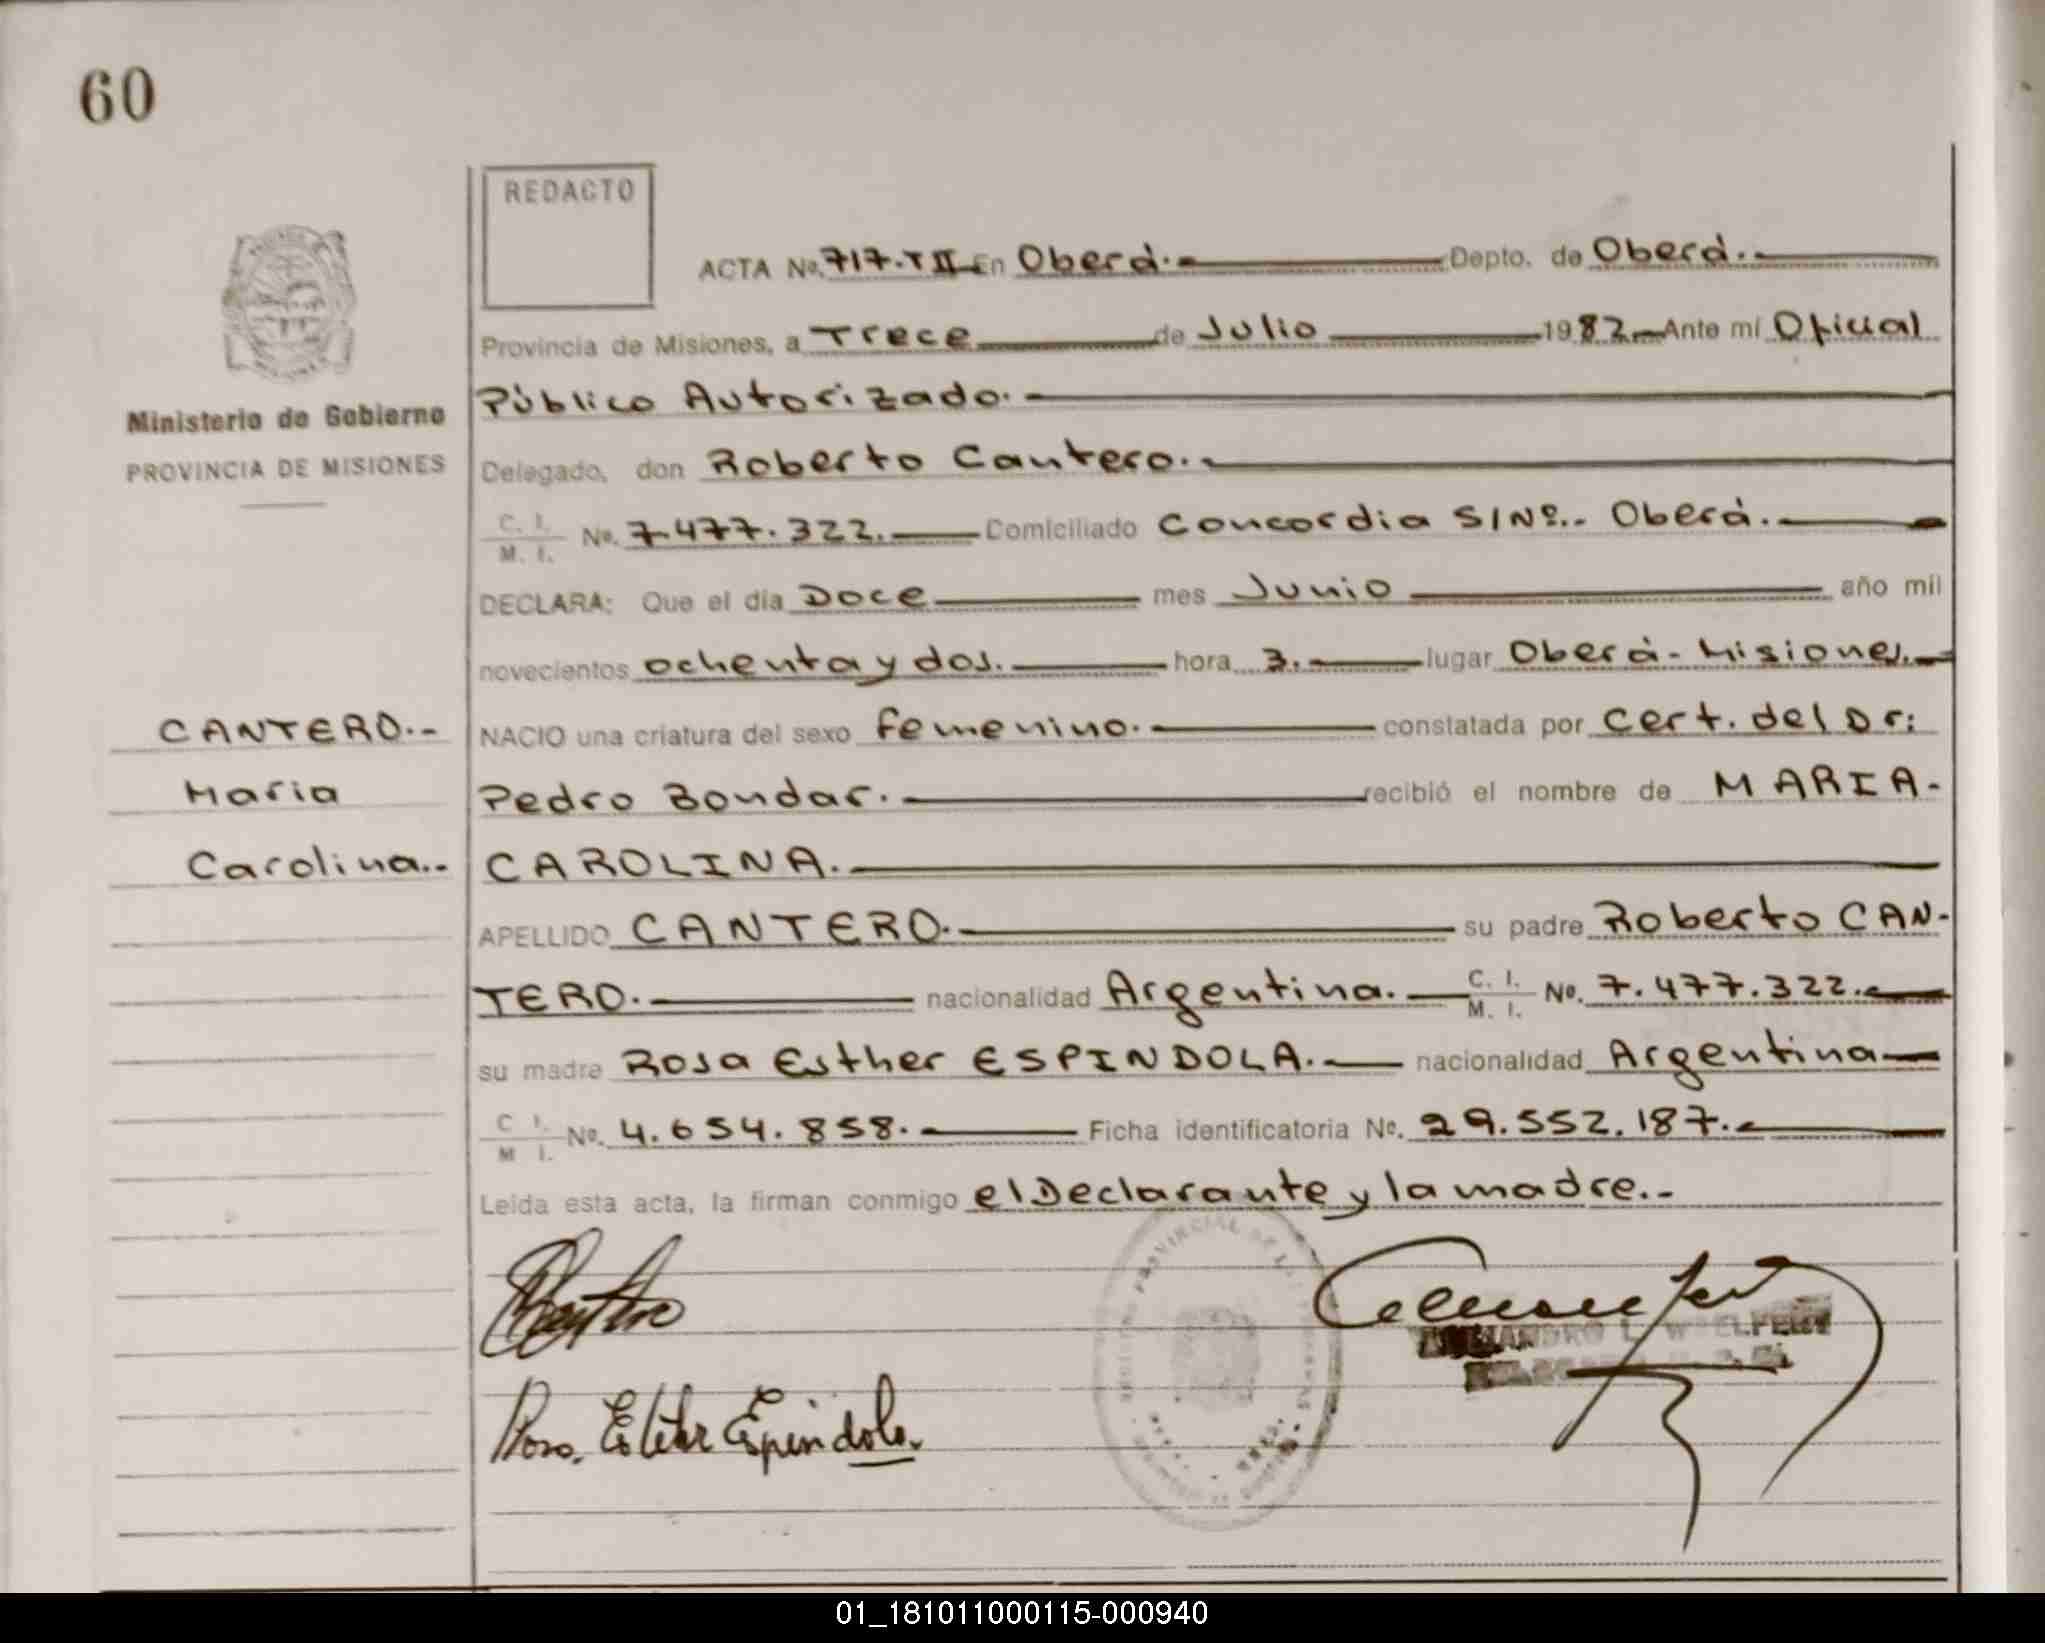 60
REDACTO
ACTA No. 717.T II En Oberá.- Depto. de Oberá.-
Provincia de Misiones, a Trece de Julio 1982.- Ante mí Oficial
Público Autorizado.-
Ministerio de Gobierno
PROVINCIA DE MISIONES
Delegado, don Roberto Cantero.-
C. I. M. I. No. 7.477.322.- Domiciliado Concordia S/Nº.- Oberá.-
DECLARA: Que el día Doce mes Junio año mil
novecientos ochenta y dos.- hora 3.- lugar Oberá - Misiones.-
CANTERO.- NACIO una criatura del sexo femenino.- constatada por Cert. del Dr:
Maria Pedro Bondar.- recibió el nombre de MARIA-
Carolina.- CAROLINA.-
APELLIDO CANTERO.- su padre Roberto CAN-
TERO.- nacionalidad Argentina.- C. I. M. I. No. 7.477.322.-
su madre Rosa Esther ESPINDOLA.- nacionalidad Argentina-
C I. M I. No. 4.654.858.- Ficha identificatoria No. 29.552.187.-
Leída esta acta, la firman conmigo el Declarante y la madre.-
Rosa Esther Espindola.
01_181011000115-000940